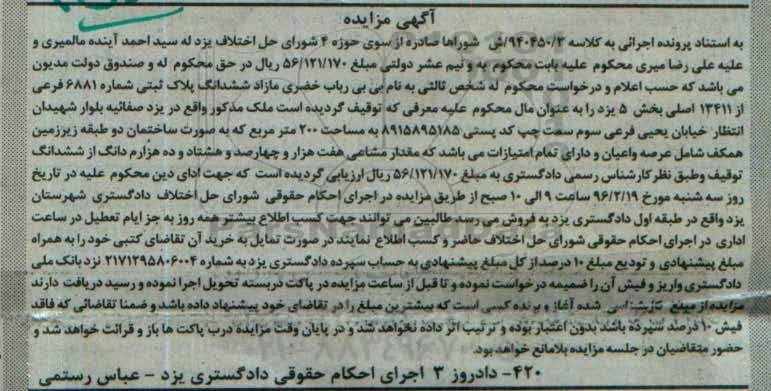 آگهی مزایده
به استناد پرونده اجرائی به کلاسه ۹۴۰۴۵۰/۳/ش شوراها صادره از سوی حوزه ۴ شورای حل اختلاف یزد له سید احمد آینده مالمیری و
علیه علی رضا میری محکوم علیه بابت محکوم به و نیم عشر دولتی مبلغ ۵۶/۱۲۱/۱۷۰ ریال در حق محکوم له و صندوق دولت مدیون
می باشد که حسب اعلام و درخواست محکوم له شخص ثالثی به نام بی بی رباب خضری مازاد ششدانگ پلاک ثبتی شماره ۶۸۸۱ فرعی
از ۱۳۴۱۱ اصلی بخش ۵ یزد را به عنوان مال محکوم علیه معرفی که توقیف گردیده است ملک مذکور واقع در یزد صفائیه بلوار شهیدان
انتظار خیابان یحیی فرعی سوم سمت چپ کد پستی ۸۹۱۵۸۹۵۱۸۵ به مساحت ۲۰۰ متر مربع که به صورت ساختمان دو طبقه زیرزمین
همکف شامل عرصه واعیان و دارای تمام امتیازات می باشد که مقدار مشاعی هفت هزار و چهارصد و هشتاد و ده هزارم دانگ از ششدانگ
توقیف وطبق نظر کارشناس رسمی دادگستری به مبلغ ۵۶/۱۲۱/۱۷۰ ریال ارزیابی گردیده است که جهت ادای دین محکوم علیه در تاریخ
روز سه شنبه مورخ ۹۶/۲/۱۹ ساعت ۹ الی ۱۰ صبح از طریق مزایده در اجرای احکام حقوقی شورای حل اختلاف دادگستری شهرستان
یزد واقع در طبقه اول دادگستری یزد به فروش می رسد طالبین می توانند جهت کسب اطلاع بیشتر همه روز به جز ایام تعطیل در ساعت
اداری در اجرای احکام حقوقی شورای حل اختلاف حاضر و کسب اطلاع نمایند در صورت تمایل به خرید آن تقاضای کتبی خود را به همراه
مبلغ پیشنهادی و تودیع مبلغ ۱۰ درصد از کل مبلغ پیشنهادی به حساب سپرده دادگستری یزد به شماره ۲۱۷۱۲۹۵۸۰۶۰۰۴ نزد بانک ملی
دادگستری واریز و فیش آن را ضمیمه درخواست نموده و تا قبل از ساعت مزایده در پاکت دربسته تحویل اجرا نموده و رسید دریافت دارند
مزایده از مبلغ کارشناسی شده آغاز و برنده کسی است که بیشترین مبلغ را در تقاضای خود پیشنهاد داده باشد و ضمنا تقاضائی که فاقد
فیش ۱۰ درصد سپرده باشد بدون اعتبار بوده و ترتیب اثر داده نخواهد شد و در پایان وقت مزایده درب پاکت ها باز و قرائت خواهد شد و
حضور متقاضیان در جلسه مزایده بلامانع خواهد بود.
۴۲۰- دادورز ۳ اجرای احکام حقوقی دادگستری یزد - عباس رستمی